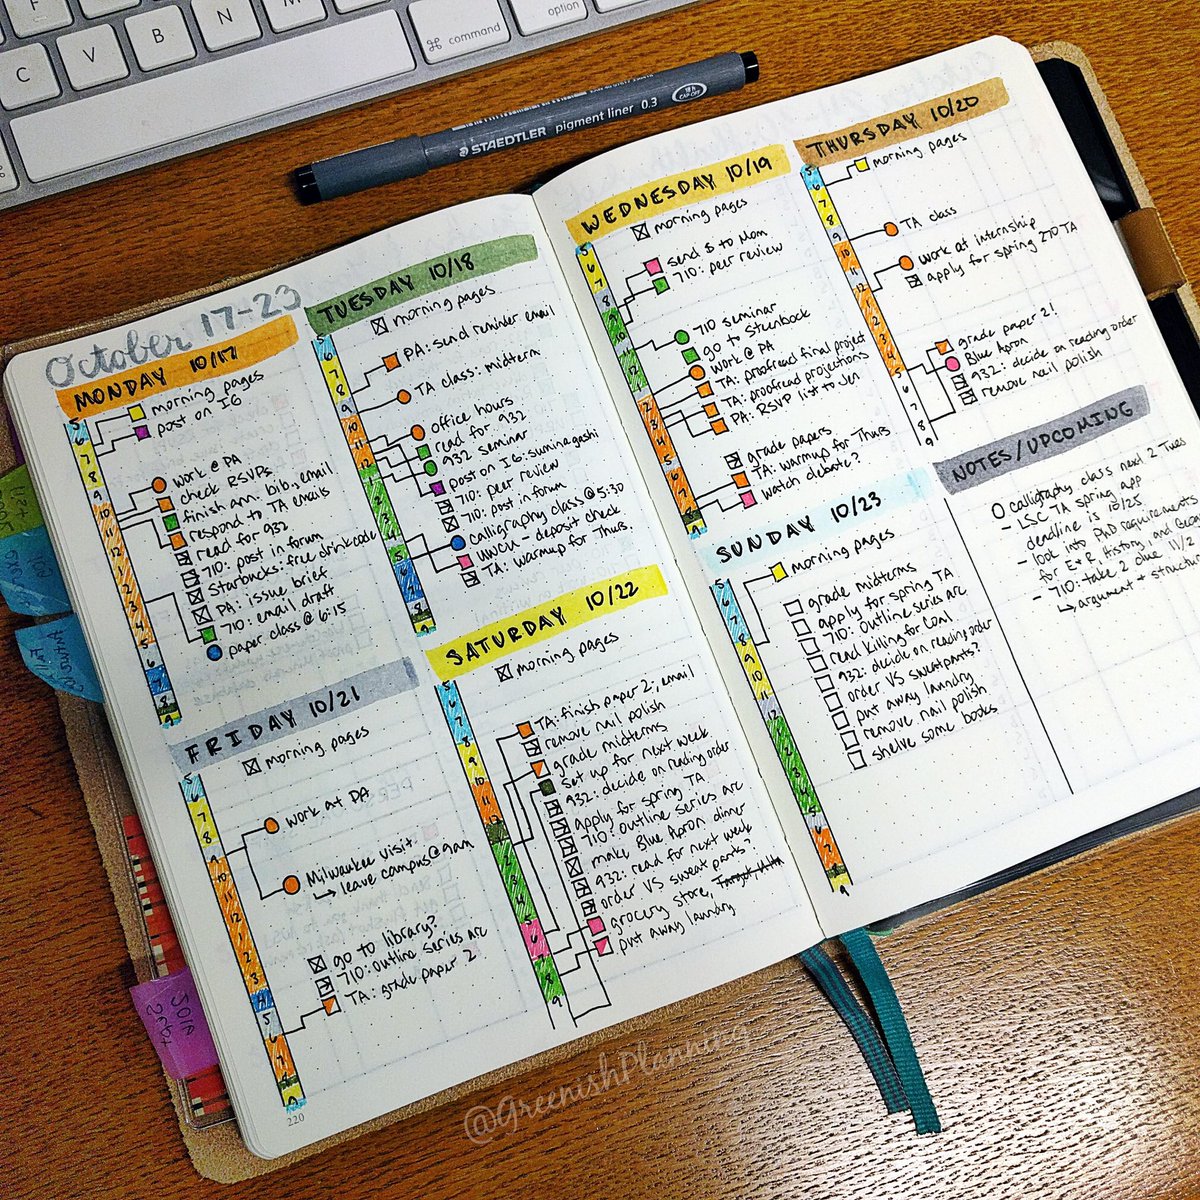 F
C
V
B
N
M
⌘ command
option
STAEDTLER pigment liner 0.3
CAP OFF
October 17-23
MONDAY 10/17
morning pages
post on IG
work @ PA
check RSVPs
finish ann. bib., email
respond to TA emails
read for 932
710: post in forum
Starbucks: free drink code
PA: issue brief
710: email draft
paper class @ 6:15
TUESDAY 10/18
morning pages
PA: send reminder email
TA class: midterm
office hours
read for 932
932 seminar
post on IG: suminagashi
710: peer review
710: post in forum
calligraphy class @ 5:30
UWCU - deposit check
TA: warmup for Thurs.
WEDNESDAY 10/19
morning pages
send $ to Mom
710: peer review
710 seminar
go to Steenbock
work @ PA
TA: proofread final project
TA: proofread projections
PA: RSVP list to Jen
grade papers
TA: warmup for Thurs
watch debate?
THURSDAY 10/20
morning pages
TA class
work at internship
apply for spring 270 TA
grade paper 2!
Blue Apron
932: decide on reading order
remove nail polish
FRIDAY 10/21
morning pages
work at PA
Milwaukee visit.
↳ leave campus @ 9am
go to library?
710: outline series arc
TA: grade paper 2
SATURDAY 10/22
morning pages
TA: finish paper 2;, email
remove nail polish
grade midterms
set up for next week
932: decide on reading order
apply for spring TA
710: outline series arc
make Blue Apron dinner
932: read for next week
order VS sweat pants?
grocery store,
put away laundry
SUNDAY 10/23
morning pages
grade midterms
apply for spring TA
710: outline series arc
read Killing for Coal
932: decide on reading order
order VS sweatpants?
put away laundry
remove nail polish
shelve some books
NOTES/UPCOMING
calligraphy class next 2 Tues
- LSC TA spring app
deadline is 10/25
- look into PhD requirements
for E+R, History, and
- 710: take 2 due 11/2
↳ argument + structure
220
@GreenishPlanning